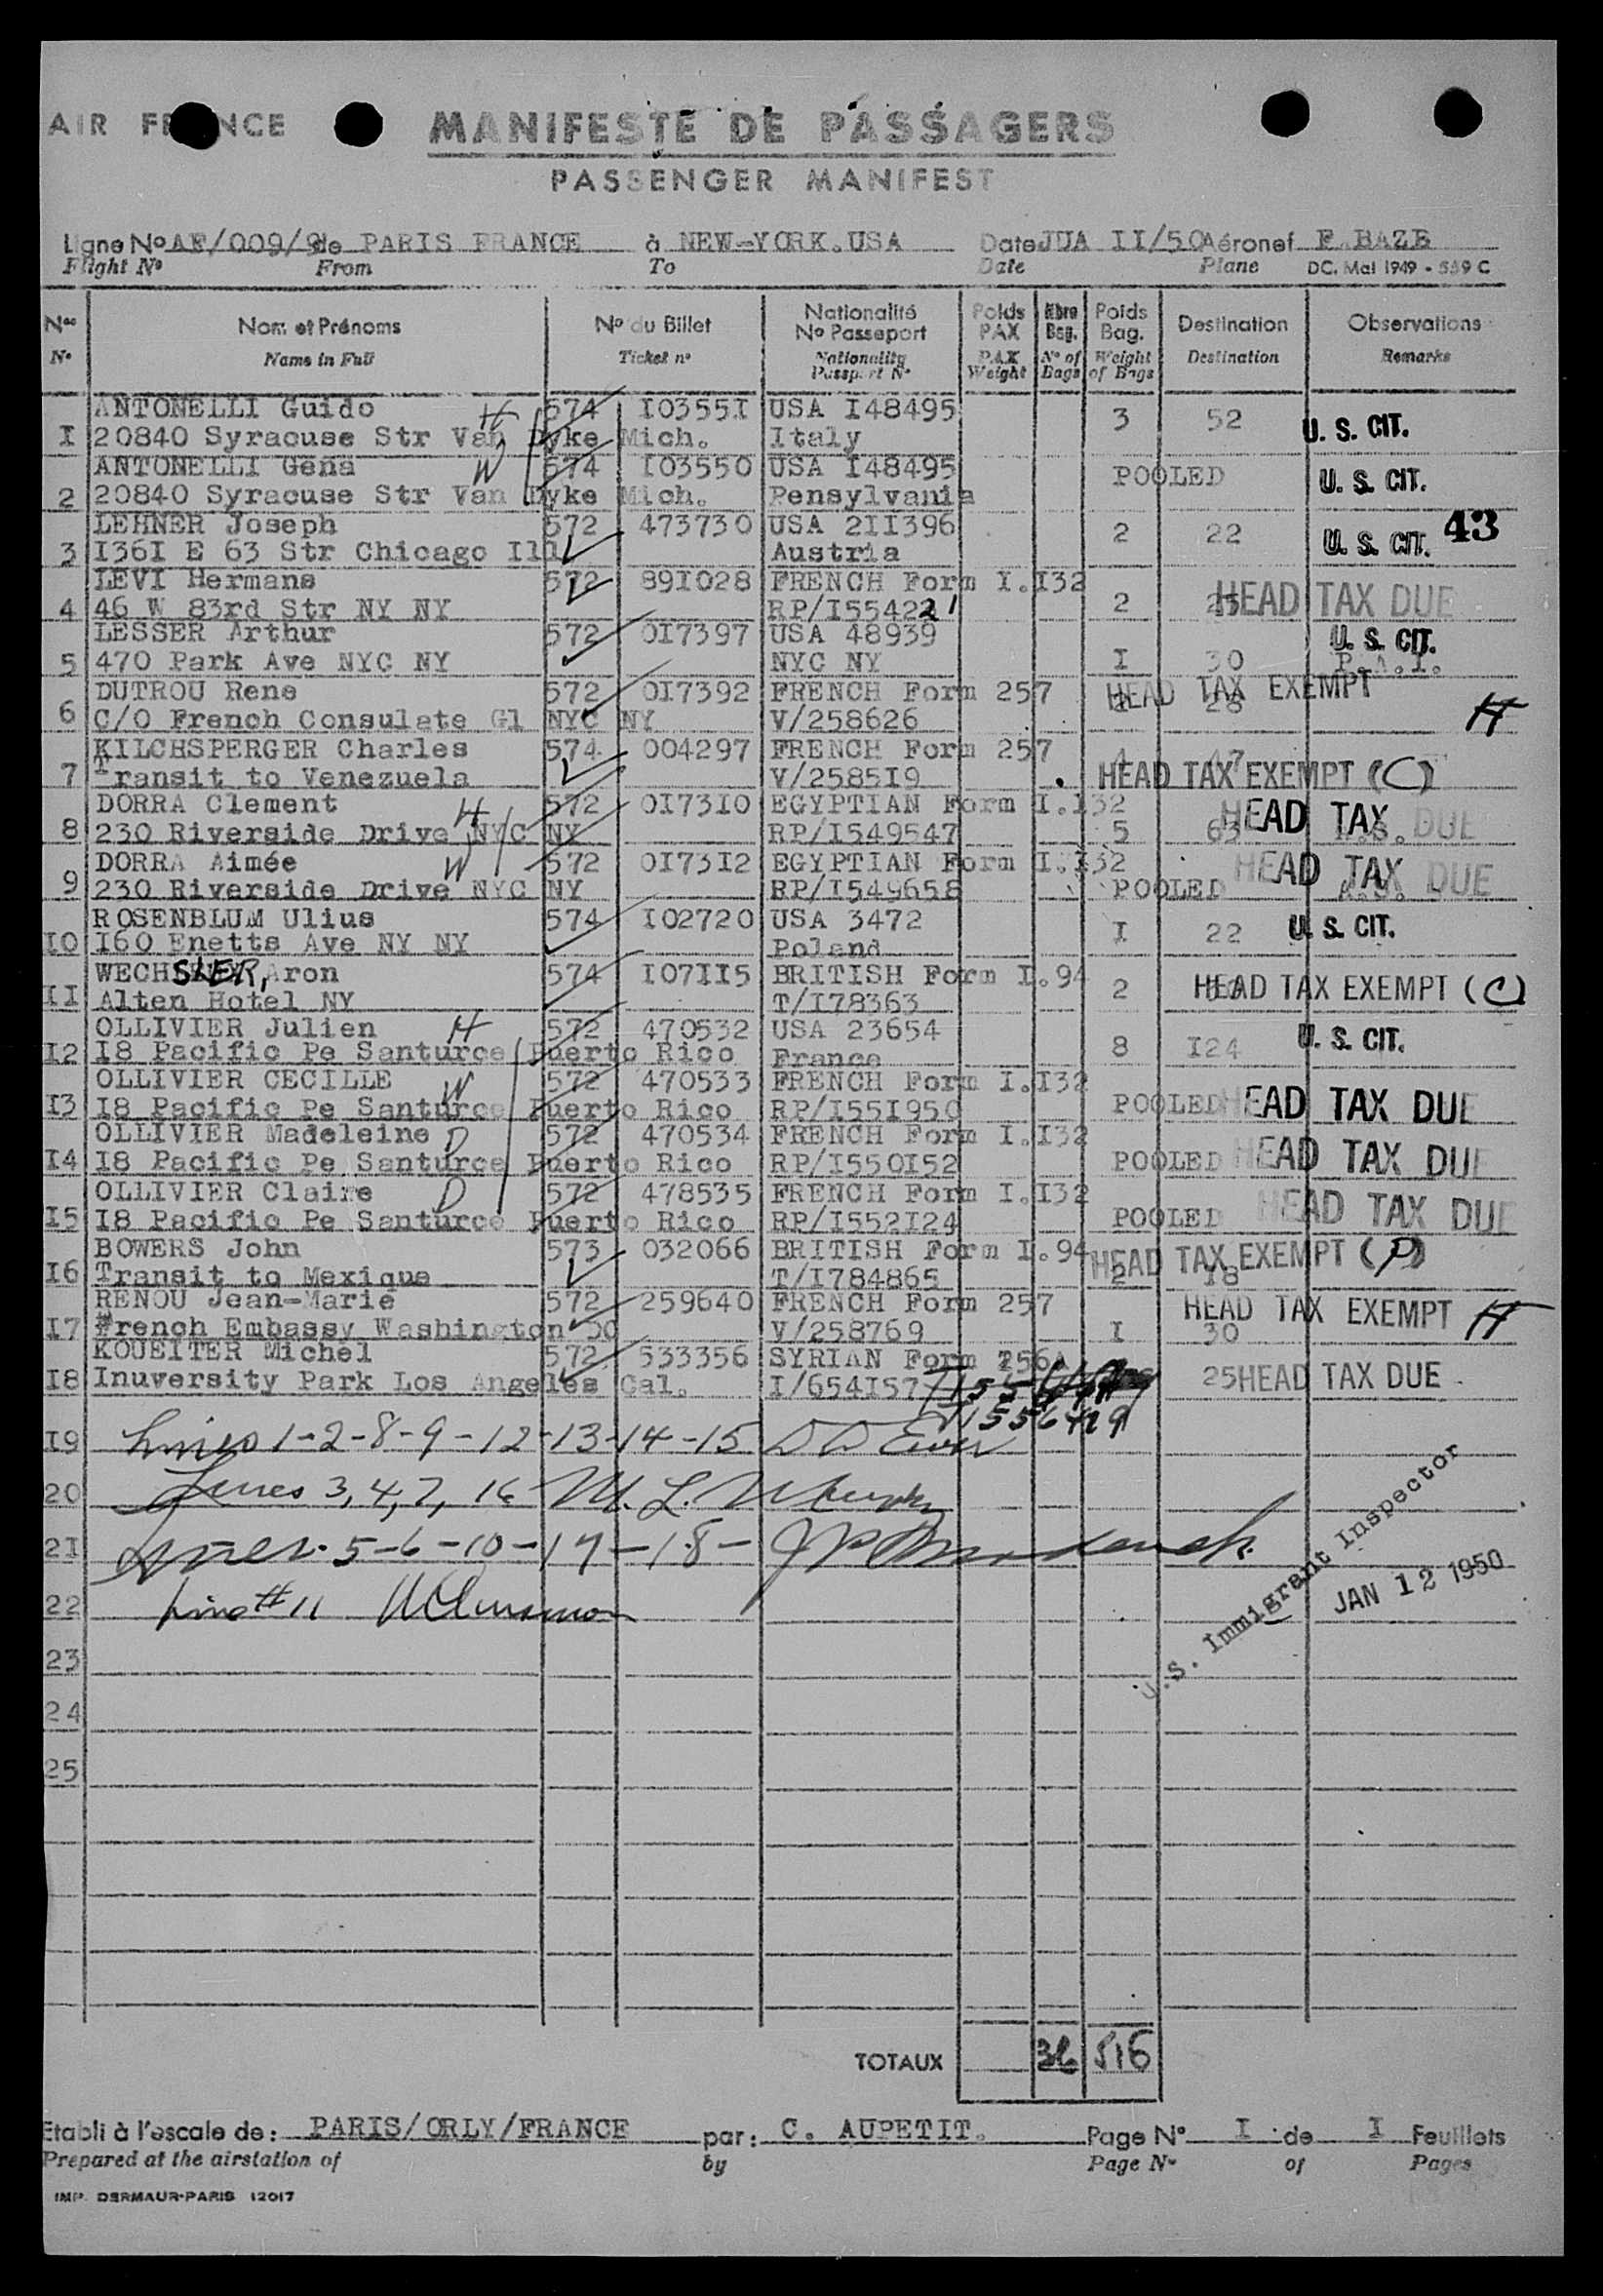 AIR FRANCE
MANIFESTE DE PASSAGERS
PASSENGER MANIFEST
Ligne No AF/009/9 de PARIS FRANCE à NEW-YORK.USA Date JUA II/50 Aéronef F.BAZB
Flight No From To Date Plane DC. Mai 1949 - 559 C
Nos Nom et Prénoms No du Billet Nationalité No Passeport Poids PAX Nbre Bag. Poids Bag. Destination Observations
No Name in Full Ticket no Nationality Passport No PAX Weight No of Bags Weight of Bags Destination Remarks
ANTONELLI Guido H 574 I0355I USA I48495 3 52 U. S. CIT.
I 20840 Syracuse Str Van Dyke Mich. Italy
ANTONELLI Gena W 574 I03550 USA I48495 POOLED U. S. CIT.
2 20840 Syracuse Str Van Dyke Mich. Pensylvania
LEHNER Joseph 572 473730 USA 2II396 2 22 U. S. CIT. 43
3 I36I E 63 Str Chicago Ill Austria
LEVI Hermans 572 89I028 FRENCH Form I.I32 2 HEAD TAX DUE
4 46 W 83rd Str NY NY RP/I55422
LESSER Arthur 572 0I7397 USA 48939 U. S. CIT.
5 470 Park Ave NYC NY NYC NY I 30 P.A.I.
DUTROU Rene 572 0I7392 FRENCH Form 257 28 HEAD TAX EXEMPT
6 C/O French Consulate Gl NYC NY V/258626 H
KILCHSPERGER Charles 574 004297 FRENCH Form 257 4 47
7 Transit to Venezuela V/2585I9 HEAD TAX EXEMPT (C)
DORRA Clement H 572 0I73I0 EGYPTIAN Form I.I32 HEAD TAX DUE
8 230 Riverside Drive NYC NY RP/I549547 5 63
DORRA Aimée W 572 0I73I2 EGYPTIAN Form I.I32 HEAD TAX DUE
9 230 Riverside Drive NYC NY RP/I549658 POOLED
ROSENBLUM Ulius 574 I02720 USA 3472 I 22 U. S. CIT.
I0 I60 Enetts Ave NY NY Poland
WECHSLER, Aron 574 I07II5 BRITISH Form I.94 2 HEAD TAX EXEMPT (C)
II Alten Hotel NY T/I78363
OLLIVIER Julien H 572 470532 USA 23654 8 I24 U. S. CIT.
I2 I8 Pacific Pe Santurce Puerto Rico France
OLLIVIER CECILLE W 572 470533 FRENCH Form I.I32
I3 I8 Pacific Pe Santurce Puerto Rico RP/I55I950 POOLED HEAD TAX DUE
OLLIVIER Madeleine D 572 470534 FRENCH Form I.I32
I4 I8 Pacific Pe Santurce Puerto Rico RP/I550I52 POOLED HEAD TAX DUE
OLLIVIER Claire D 572 478535 FRENCH Form I.I32
I5 I8 Pacific Pe Santurce Puerto Rico RP/I552I24 POOLED HEAD TAX DUE
BOWERS John 573 032066 BRITISH Form I.94 HEAD TAX EXEMPT (P)
I6 Transit to Mexique T/I784865 2 I8
RENOU Jean-Marie 572 259640 FRENCH Form 257 HEAD TAX EXEMPT H
I7 French Embassy Washington DC V/258769 I 30
KOUEITER Michel 572 533356 SYRIAN Form 256A
I8 Inuversity Park Los Angeles Cal. I/654I57 25 HEAD TAX DUE
1556429
I9 Lines 1-2-8-9-12-13-14-15
20 Lines 3, 4, 7, 16 M. L.
21 Lines 5-6-10-17-18-
22 Line # 11
U.S. Immigrant Inspector
JAN 12 1950
23
24
25
TOTAUX 36 516
Etabli à l'escale de: PARIS/ORLY/FRANCE par: C. AUPETIT. Page No I de I Feuillets
Prepared at the airstation of by Page No of Pages
IMP. DERMAUR-PARIS 12017